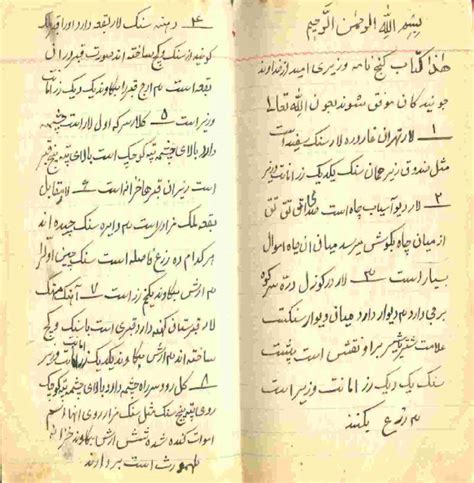 بسم الله الرحمن الرحیم
هذا کتاب گنج نامه وزیری امید از خداوند
جویندگان موفق شوند بعون الله تعالی
۱ لار تهران غاروده لار سنک سفید است
مثل صندوق زیر همان سنک یکدیک زر امانت وزیر
۲ لار دیو آسیاب چاه است صدای تق تق
از میان چاه بکوش میرسد میان ان چاه اموال
بسیار است ۳ لار در کوزل دره سرکوه
برجی دارد دیوار دارد میانی دیوار سنکیست
علامت شیر سر او نقش است پشت
سنک یک دیک زر امانت وزیر است
ذرع بکنند
۴ دهنه سنک لار بقعه دارد
کویند از سنک و کچ ساخته اند صورت قبر در ان
بقعه است قبر را بکاوند یک دیک زر امانت
وزیر است ۵ کلار سرکو اول لار چشمه
دارد بالای چشمه تپه کوچک است بالای تپه کنج
است زیر ان قبرها خزانه است ۶ لار مقابل
بقعه ملک مزار دایره سنک چیده اند
هر کدام ده زرع فاصله است سنک چین اول
ارش بکاوند بکیرند ۷
لار قبرستان کهنه دارد قبری است با سنک و کچ
ساخته اند ارش بکاوند یکدیک زر امانت وزیر است
۸ کل رود سر راه چشمه دارد بالای چشمه تپه کوچک
روی تپه پنج سنک مثل سنک مزار روی انها اسم
اموات کنده شده شش ارش بکاوند خزانه
طهمورث است بردارند